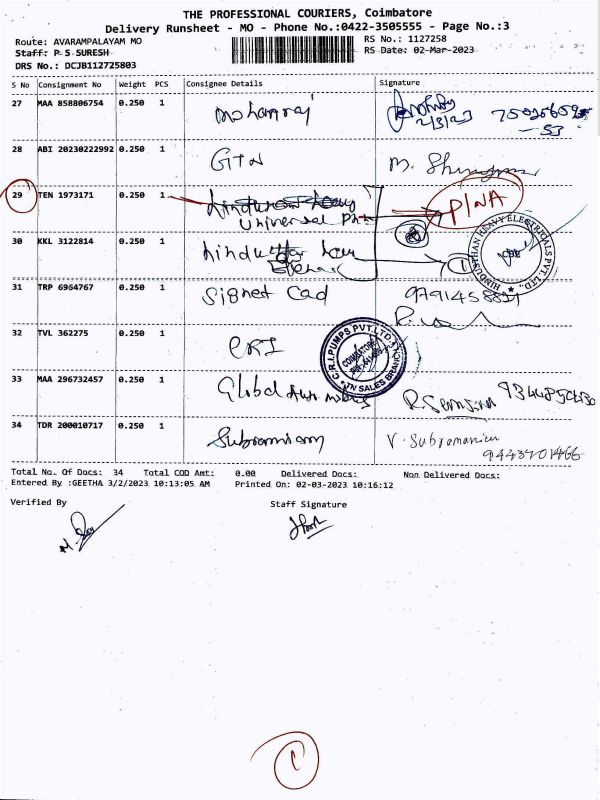 THE PROFESSIONAL COURIERS, Coimbatore
Delivery Runsheet - MO - Phone No.:0422-3505555 - Page No.:3
Route: AVARAMPALAYAM MO
RS No.: 1127258
Staff: P S SURESH
RS Date: 02-Mar-2023
DRS No.: DCJB112725803
S No Consignment No Weight PCS Consignee Details Signature
27 MAA 858806754 0.250 1 Mohanraj
2/3/23
28 ABI 20230222992 0.250 1 GTN
29 TEN 1973171 0.250 1 Universal PINA
30 KKL 3122814 0.250 1
HINDUSTHAN HEAVY ELECTRICALS PVT. LTD.,
31 TRP 6964767 0.250 1 Signet Cad
32 TVL 362275 0.250 1 CRI
C.R.I. PUMPS PVT. LTD. COIMBATORE TN SALES BRANCH
33 MAA 296732457 0.250 1 Global
34 TDR 200010717 0.250 1 V. Subramanian
9443701466
Total No. Of Docs: 34 Total COD Amt: 0.00 Delivered Docs: Non Delivered Docs:
Entered By :GEETHA 3/2/2023 10:13:05 AM Printed On: 02-03-2023 10:16:12
Verified By Staff Signature